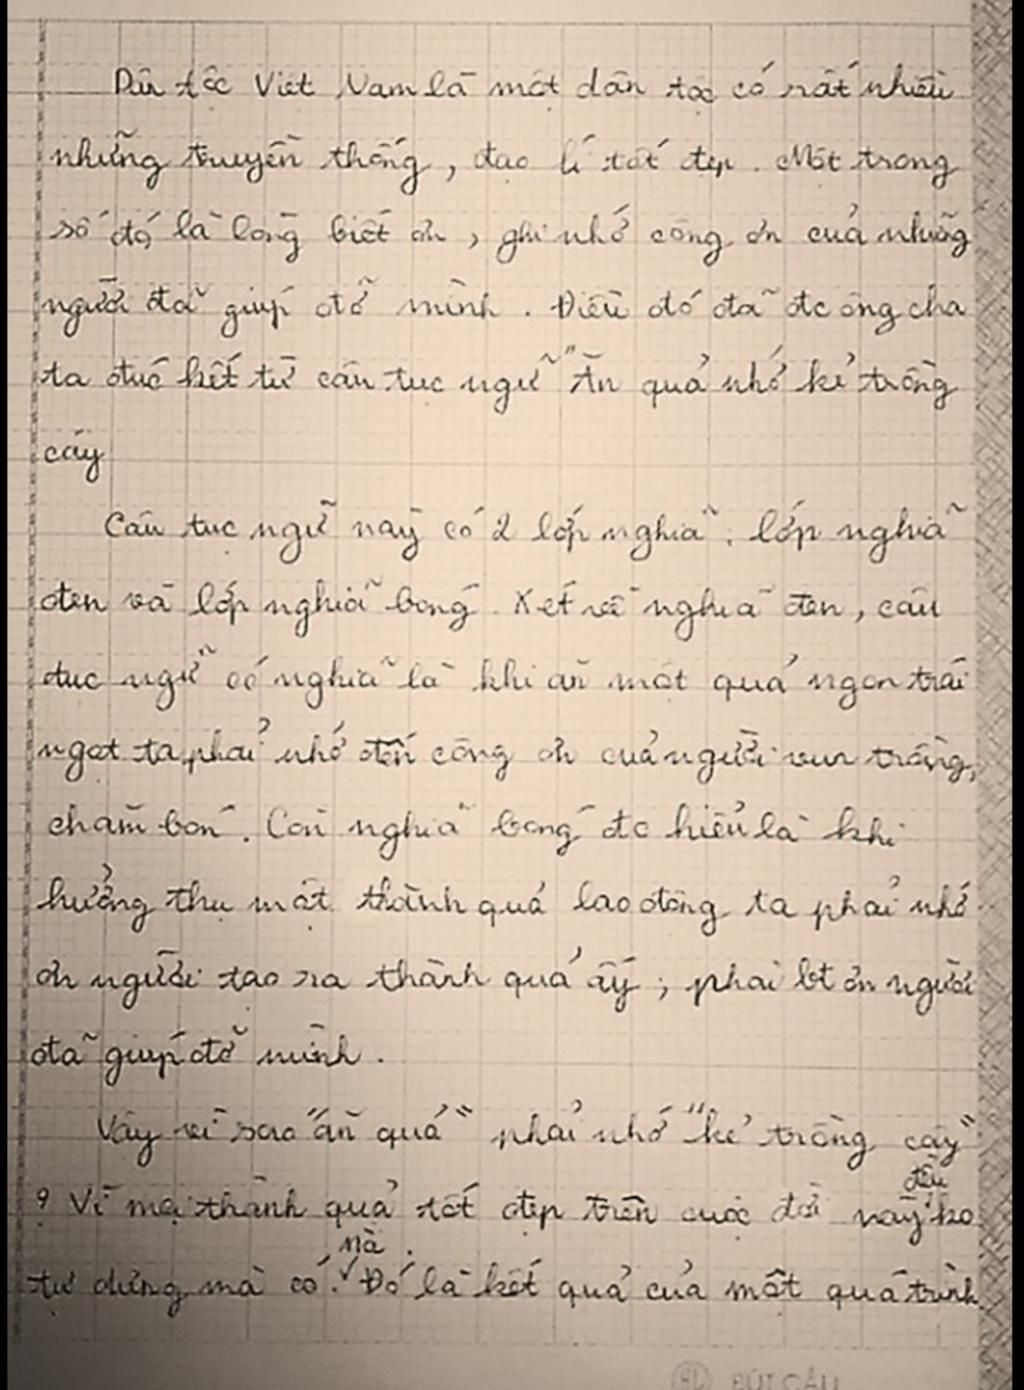 Dân tộc Việt Nam là một dân tộc có rất nhiều
những truyền thống, đạo lí tốt đẹp. Một trong
số đó là lòng biết ơn, ghi nhớ công ơn của những
người đã giúp đỡ mình. Điều đó đã đc ông cha
ta đúc kết từ câu tục ngữ "Ăn quả nhớ kẻ trồng
cây
Câu tục ngữ này có 2 lớp nghĩa: lớp nghĩa
đen và lớp nghĩa bóng. Xét về nghĩa đen, câu
tục ngữ có nghĩa là khi ăn một quả ngon trái
ngọt ta phải nhớ đến công ơn của người vun trồng,
chăm bón. Còn nghĩa bóng đc hiểu là khi
hưởng thụ một thành quả lao động ta phải nhớ
ơn người tạo ra thành quả ấy; phải bt ơn người
đã giúp đỡ mình.
Vậy vì sao "ăn quả" phải nhớ "kẻ trồng cây"
đều
? Vì mọi thành quả tốt đẹp trên cuộc đời này ko
mà
tự dưng mà có. Đó là kết quả của một quá trình
BÚT CÂU